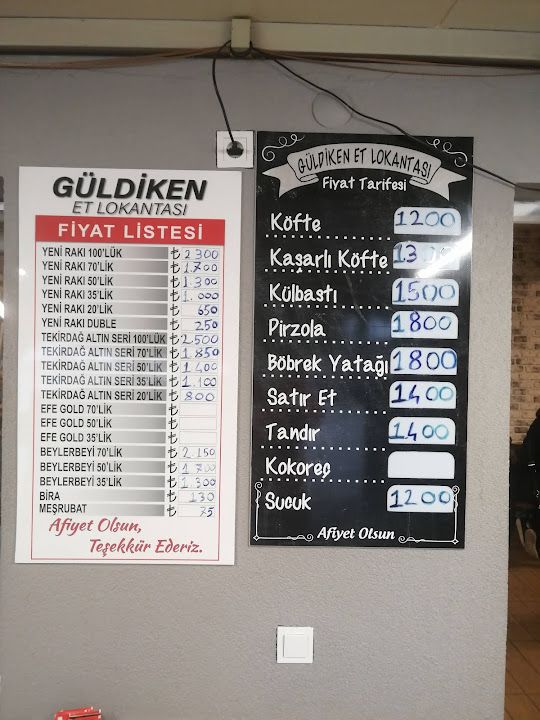 GÜLDİKEN
ET LOKANTASI
FİYAT LİSTESİ
YENİ RAKI 100'LÜK ₺ 2 300
YENİ RAKI 70'LİK ₺ 1.700
YENİ RAKI 50'LİK ₺ 1 300
YENİ RAKI 35'LİK ₺ 1.000
YENİ RAKI 20'LİK ₺ 650
YENİ RAKI DUBLE ₺ 250
TEKİRDAĞ ALTIN SERİ 100'LÜK ₺ 2500
TEKİRDAĞ ALTIN SERİ 70'LİK ₺ 1 850
TEKİRDAĞ ALTIN SERİ 50'LİK ₺ 1 400
TEKİRDAĞ ALTIN SERİ 35'LİK ₺ 1.100
TEKİRDAĞ ALTIN SERİ 20'LİK ₺ 800
EFE GOLD 70'LİK ₺
EFE GOLD 50'LİK ₺
EFE GOLD 35'LİK ₺
BEYLERBEYİ 70'LİK ₺ 2.150
BEYLERBEYİ 50'LİK ₺ 1 700
BEYLERBEYİ 35'LİK ₺ 1 300
BİRA ₺ 130
MEŞRUBAT ₺ 75
Afiyet Olsun,
Teşekkür Ederiz.
GÜLDİKEN ET LOKANTASI
Fiyat Tarifesi
Köfte 1200
Kaşarlı Köfte
Külbastı 1500
Pirzola 1800
Böbrek Yatağı 1800
Satır Et 1400
Tandır 1400
Kokoreç
Sucuk 1200
Afiyet Olsun